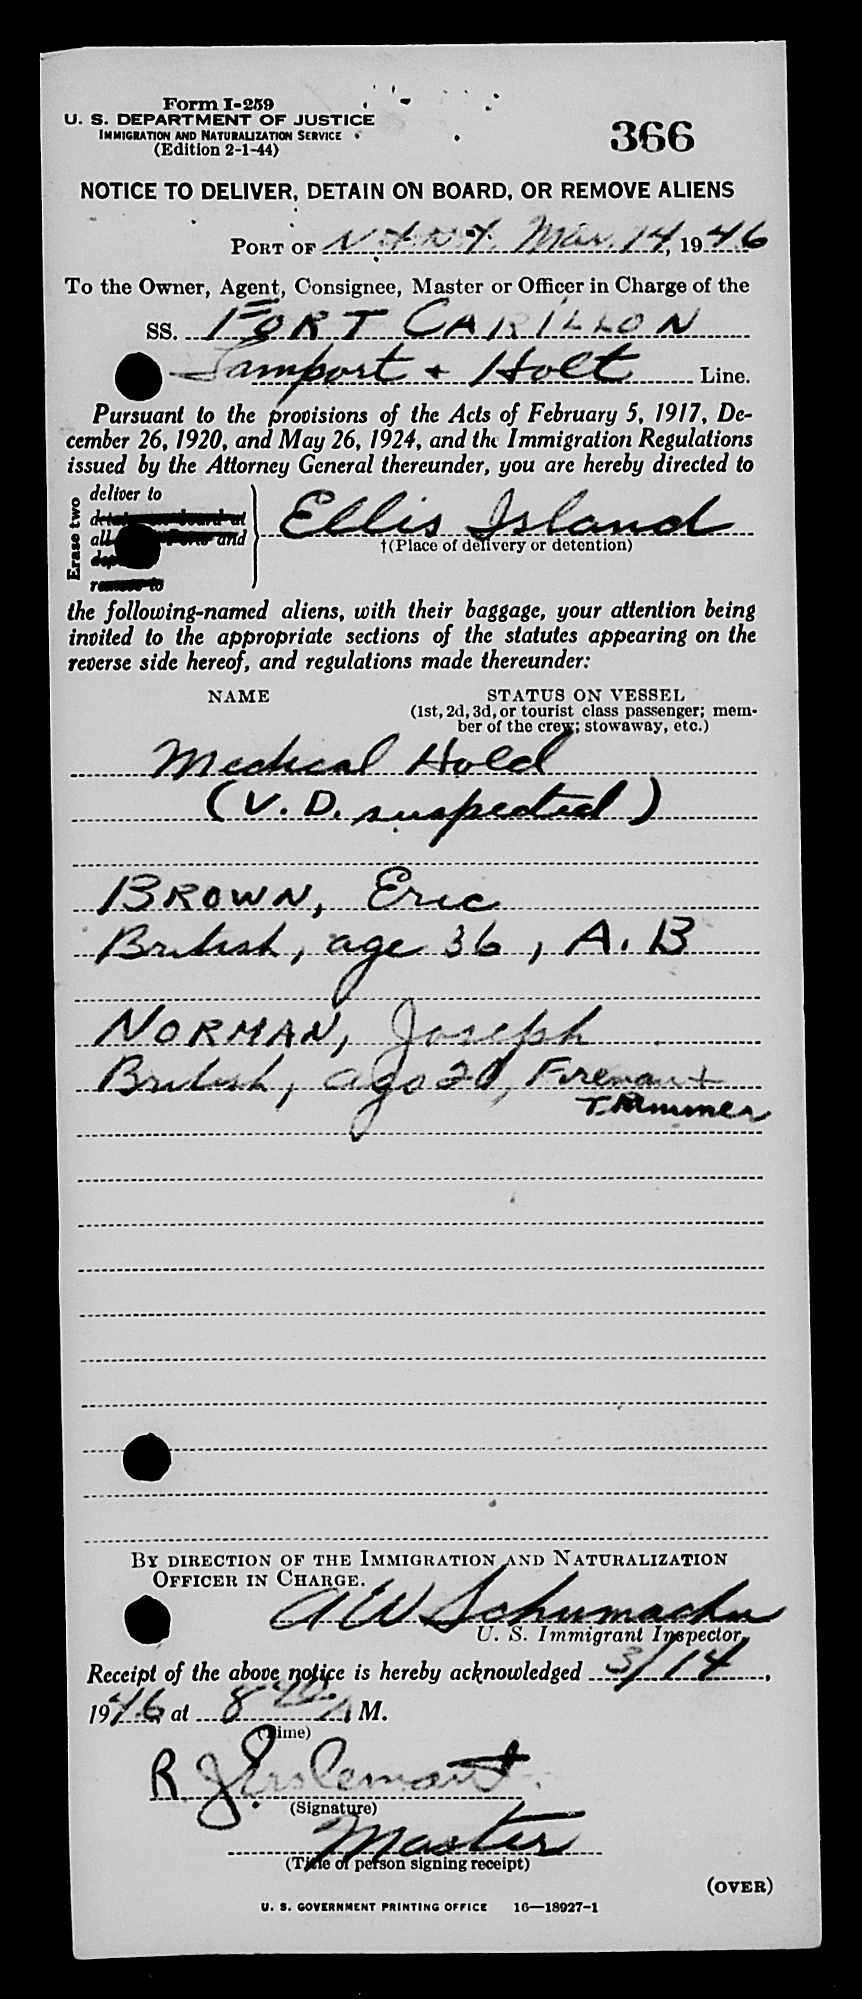 Form I-259
U. S. DEPARTMENT OF JUSTICE
IMMIGRATION AND NATURALIZATION SERVICE
(Edition 2-1-44)
366
NOTICE TO DELIVER, DETAIN ON BOARD, OR REMOVE ALIENS
PORT OF N.Y. N.Y. Mar. 14, 1946
To the Owner, Agent, Consignee, Master or Officer in Charge of the
SS. FORT CARILLON
Lamport + Holt Line.
Pursuant to the provisions of the Acts of February 5, 1917, De-
cember 26, 1920, and May 26, 1924, and the Immigration Regulations
issued by the Attorney General thereunder, you are hereby directed to
Erase two
deliver to
detain on board at
all and
remove to
Ellis Island
†(Place of delivery or detention)
the following-named aliens, with their baggage, your attention being
invited to the appropriate sections of the statutes appearing on the
reverse side hereof, and regulations made thereunder:
NAME STATUS ON VESSEL
(1st, 2d, 3d, or tourist class passenger; mem-
ber of the crew; stowaway, etc.)
Medical Hold
(V. D. suspected)
BROWN, Eric
British, age 36, A. B
NORMAN, Joseph
British, age 20, Fireman +
Trimmer
BY DIRECTION OF THE IMMIGRATION AND NATURALIZATION
OFFICER IN CHARGE.
A W Schumacher
U. S. Immigrant Inspector.
Receipt of the above notice is hereby acknowledged 3/14,
1946 at 8 A M.
(Time)
R
(Signature)
Master
(Title of person signing receipt)
(OVER)
U. S. GOVERNMENT PRINTING OFFICE 16—18927-1